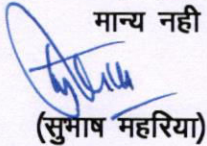 मान्य नही
(सुभाष महरिया)